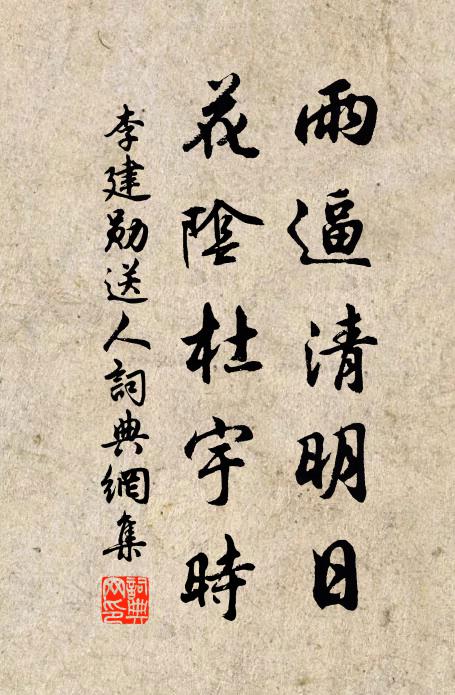 雨逼清明日
花陰杜宇時
李建勛送人詞典網集
詞典
網印